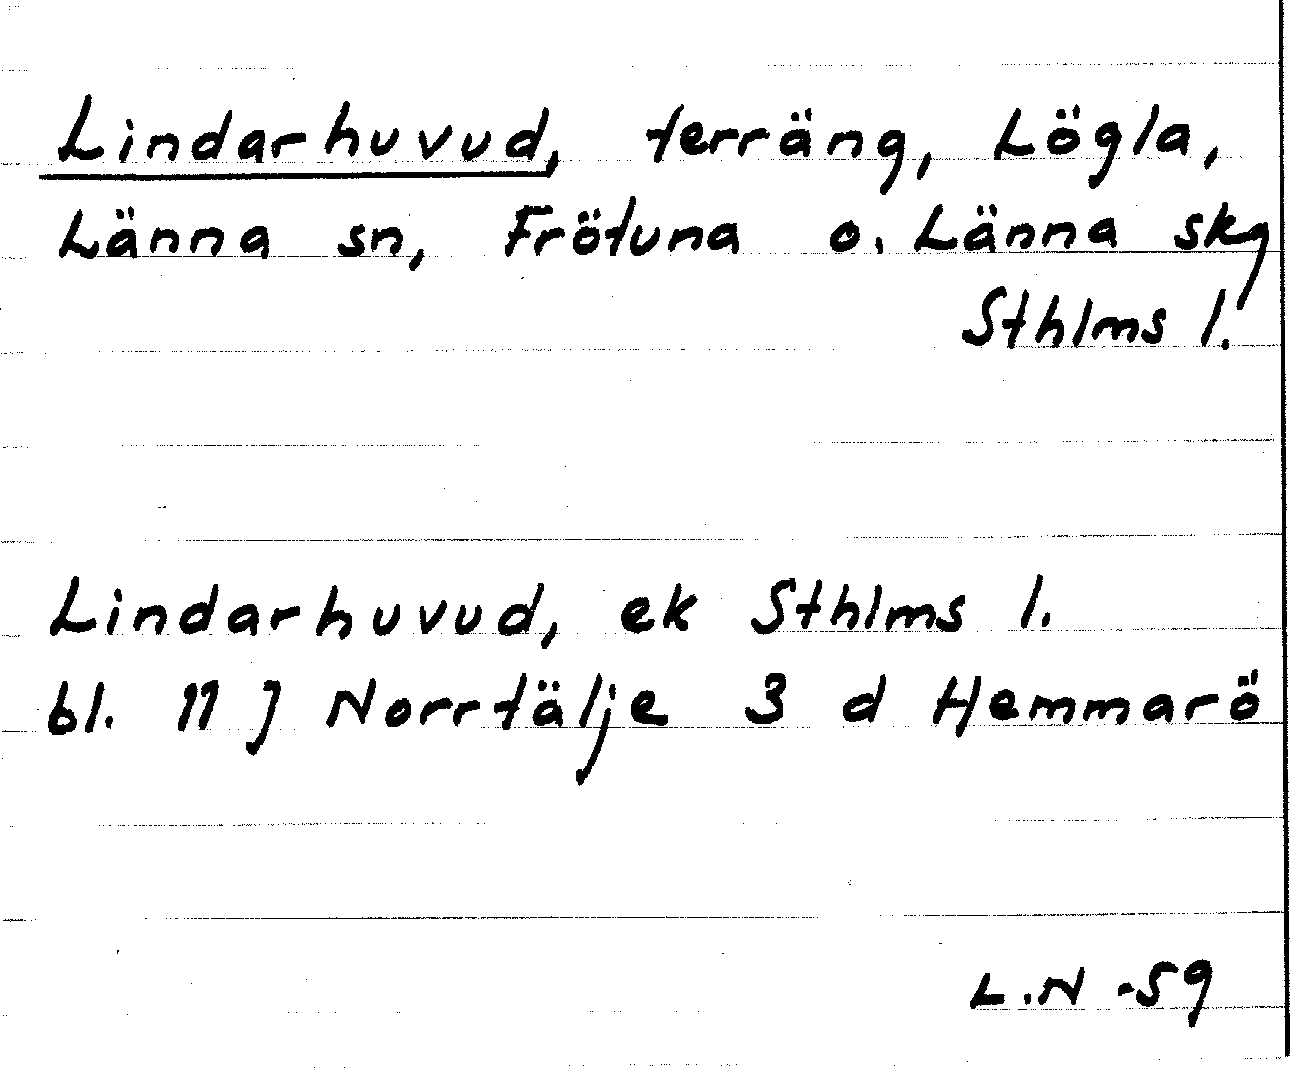 Lindarhuvud, terräng, Lögla,
Länna sn, Frötuna o. Länna skg
Sthlms l.
Lindarhuvud, ek Sthlms l.
bl. 11 J Norrtälje 3 d Hemmarö
L.N -59